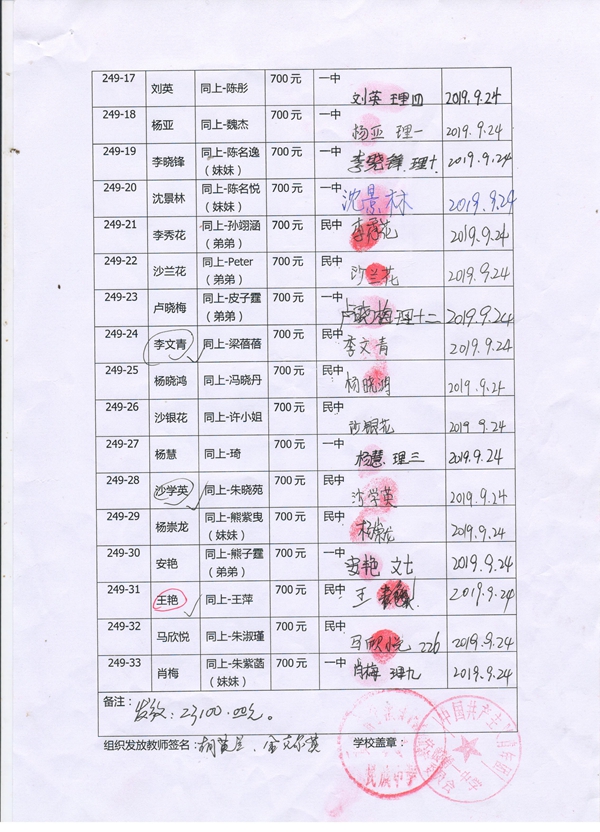 249-17 刘英 同上-陈彤 700元 一中 刘英 理四 2019.9.24
249-18 杨亚 同上-魏杰 700元 一中 杨亚 理一 2019.9.24
249-19 李晓锋 同上-陈名逸 700元 一中 李晓锋 理十 2019.9.24
（妹妹）
249-20 沈景林 同上-陈名悦 700元 一中 沈景林 2019.9.24
（妹妹）
249-21 李秀花 同上-孙翊涵 700元 民中 李秀花 2019.9.24
（弟弟）
249-22 沙兰花 同上-Peter 700元 民中 沙兰花 2019.9.24
（弟弟）
249-23 卢晓梅 同上-皮子霆 700元 一中 卢晓梅 理十二 2019.9.24
（弟弟）
249-24 李文青 同上-梁蓓蓓 700元 民中 李文青 2019.9.24
249-25 杨晓鸿 同上-冯晓丹 700元 民中 杨晓鸿 2019.9.24
249-26 沙银花 同上-许小姐 700元 民中 沙银花 2019 9.24
249-27 杨慧 同上-琦 700元 一中 杨慧 理三 2019.9.24
249-28 沙学英 同上-朱晓苑 700元 民中 沙学英 2019.9.24
249-29 杨崇龙 同上-熊紫曳 700元 民中 杨崇龙 2019.9.24
（妹妹）
249-30 安艳 同上-熊子霆 700元 一中 安艳 文七 2019.9.24
（弟弟）
249-31 王艳 同上-王萍 700元 民中 王 2019.9.24
249-32 马欣悦 同上-朱淑瑾 700元 民中 马欣悦 226 2019.9.24
249-33 肖梅 同上-朱紫菡 700元 一中 肖梅 理九 2019.9.24
（妹妹）
备注：
发放：23100.00元。
组织发放教师签名： 学校盖章：
民族中学
中国共产主义青年团